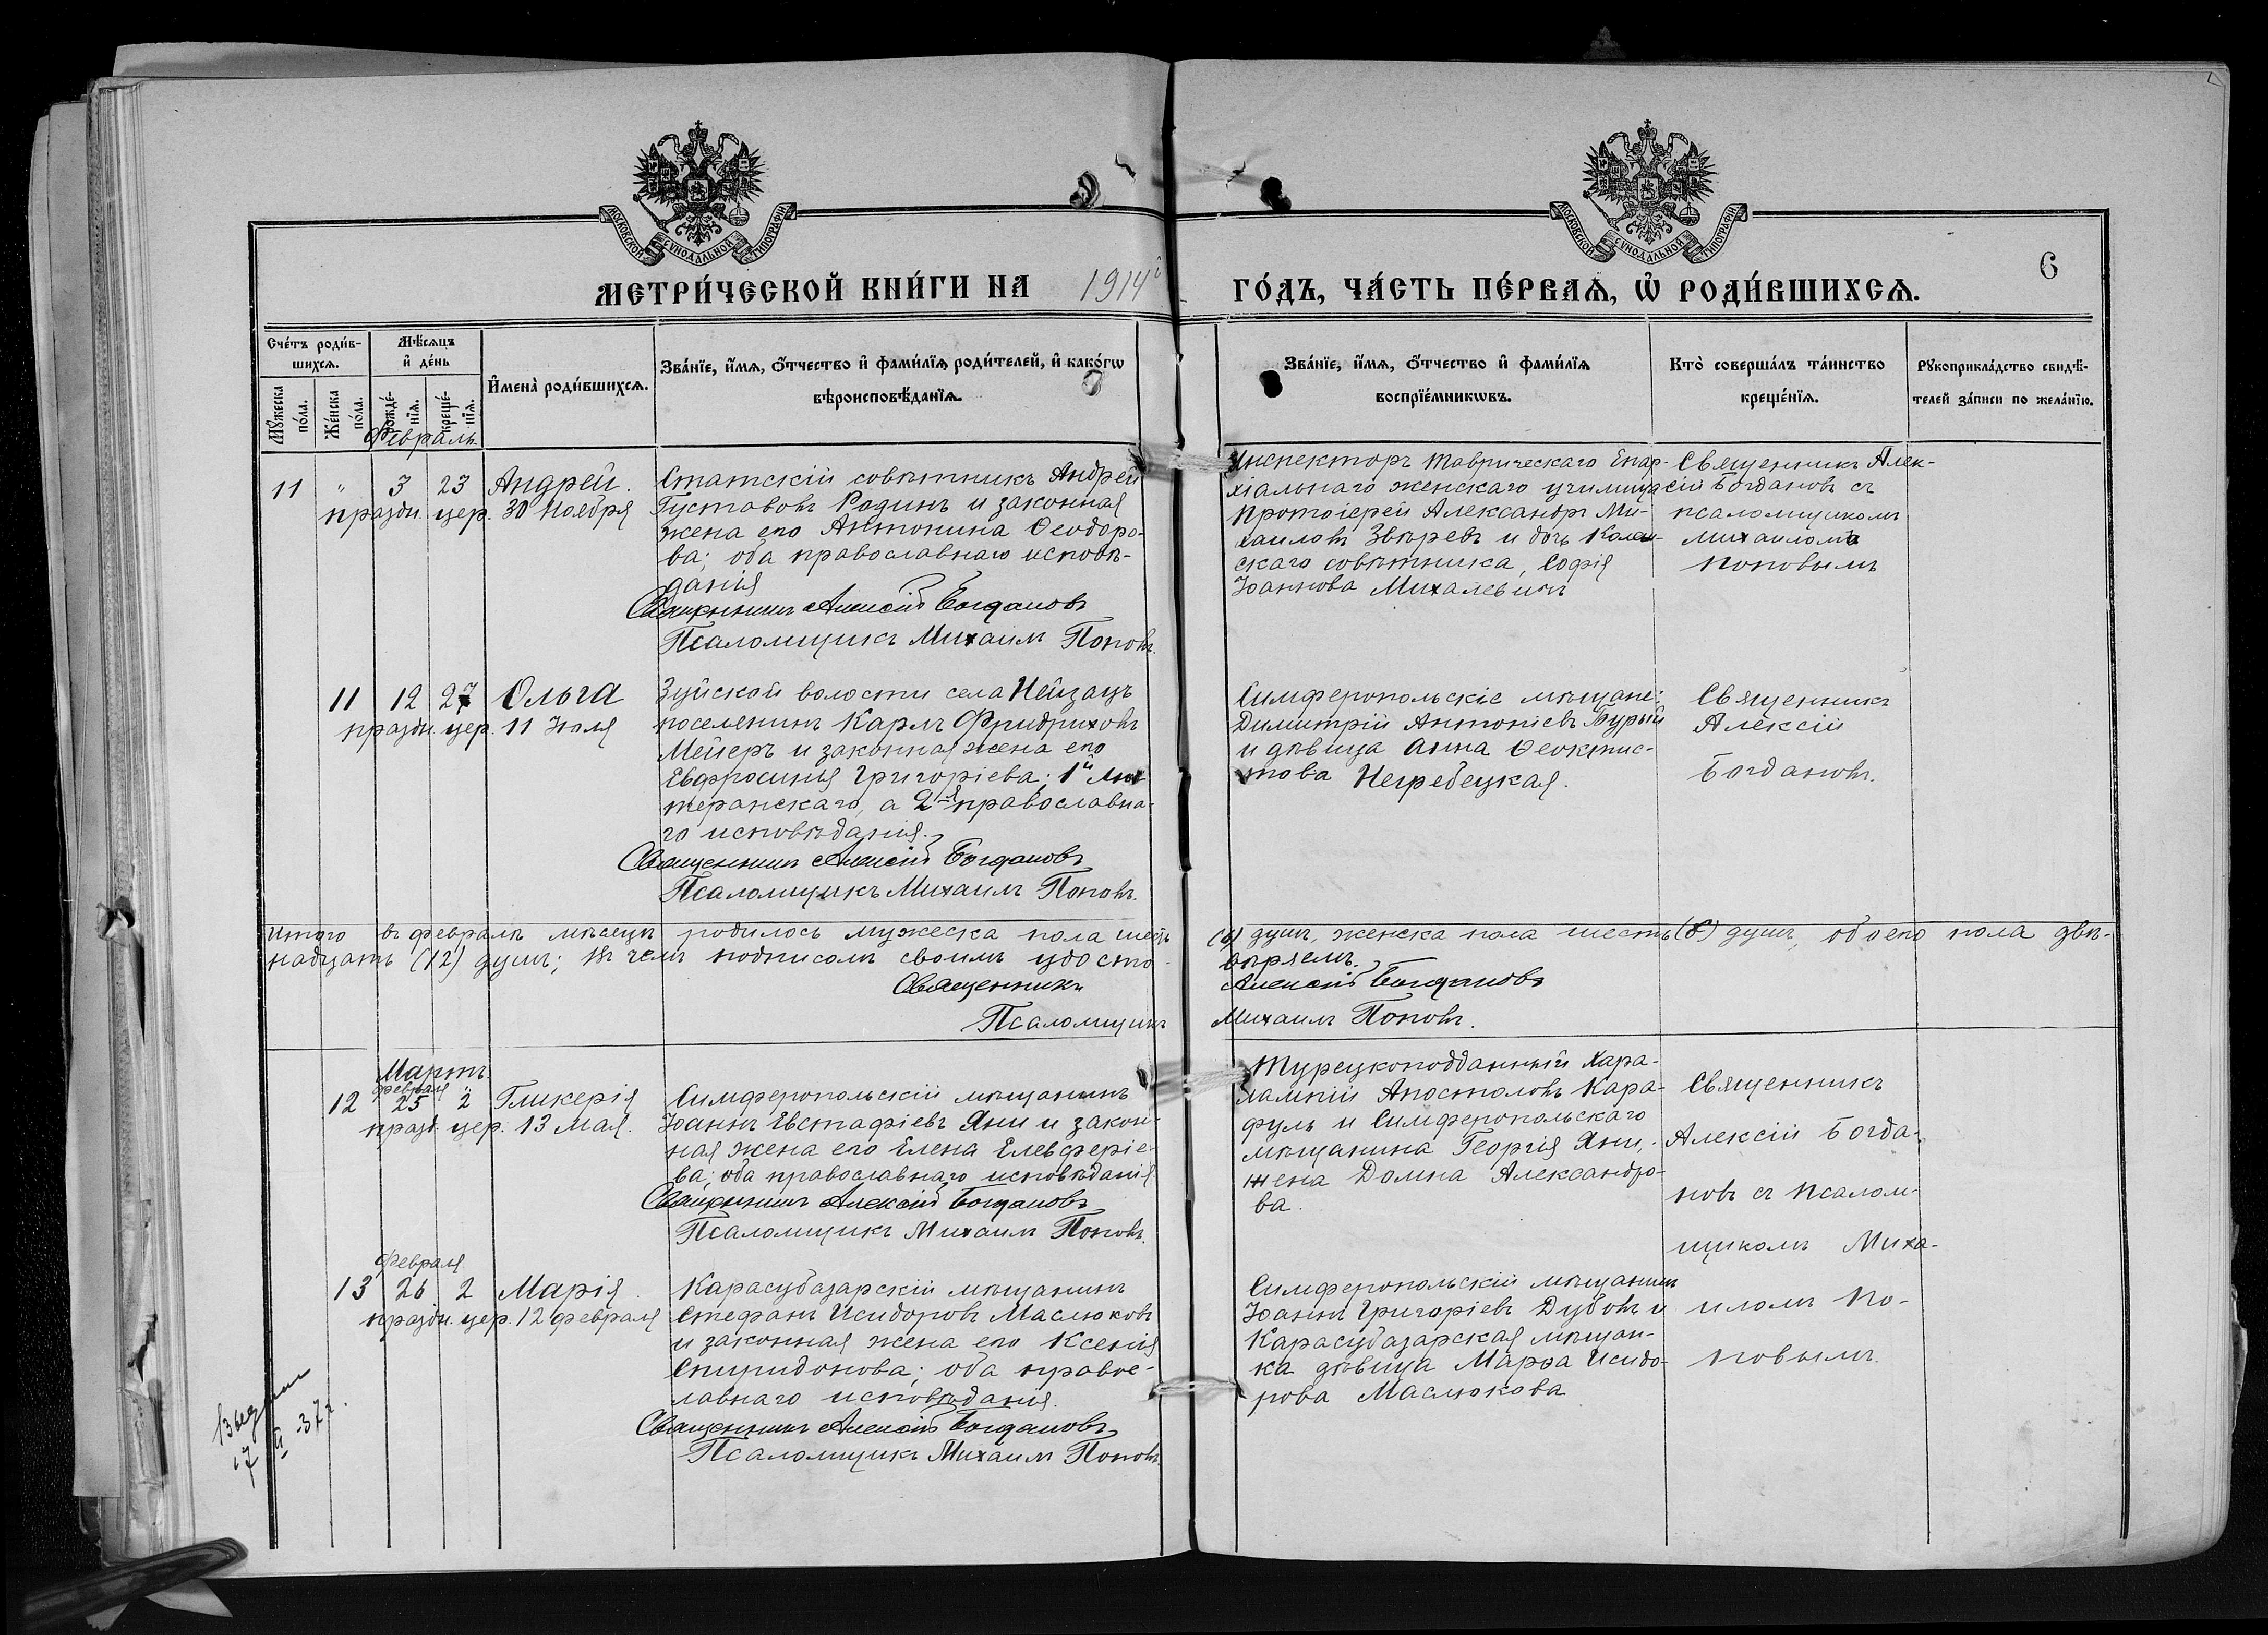 МОСКОВСКОЙ СУНОДАЛЬНОЙ ТИПОГРАФІИ
МОСКОВСКОЙ СУНОДАЛЬНОЙ ТИПОГРАФІИ
6
МЕТРИ́ЧЕСКОЙ КНИ́ГИ НА 1914й ГО́ДЪ, ЧА́СТЬ ПЕ́РВАѦ, Ѡ҆ РОДИ́ВШИХСѦ.
Сче́тъ роди́в-
шихсѧ.
Мꙋ́жеска по́ла.
Же́нска по́ла.
Мѣ́сѧцъ
и҆ де́нь
рожде́-
нїѧ.
креще́-
нїѧ.
И҆мена̀ роди́вшихсѧ.
Зва́нїе, и҆́мѧ, ѻ҆́тчество и҆ фами́лїѧ роди́телей, и҆ како́гѡ
вѣроисповѣ́данїѧ.
Зва́нїе, и҆́мѧ, ѻ҆́тчество и҆ фами́лїѧ
воспрїе́мникѡвъ.
Кто̀ соверша́лъ та́инство
креще́нїѧ.
Рꙋкоприкла́дство свидѣ́-
телей за́писи по жела́нїю.
Февраль
11 " 3 23 Андрей.
праздн. цер. 30 Ноября
Статскій совѣтникъ Андрей
Густавовъ Родинъ и законная
жена его Антонина Ѳеодоро-
ва; оба православнаго исповѣ-
данія
Священникъ Алексій Богдановъ
Псаломщикъ Михаилъ Поповъ.
Инспекторъ Таврическаго Епар-
хіальнаго женскаго училища
Протоіерей Александръ Ми-
хаиловъ Звѣревъ и дочь
скаго совѣтника, Софія
Іоаннова Михалевичъ
Священникъ Алек-
сій Богдановъ съ
псаломщикомъ
Михаиломъ
Поповымъ
11 12 27 Ольга
праздн. цер. 11 Іюля
Зуйской волости села Нейзацъ
поселенинъ Карлъ Фридриховъ
Мейеръ и законная жена его
Евфросинья Григоріева; 1й лю-
теранскаго, а 2-я православна-
го исповѣданія.
Священникъ Алексій Богдановъ
Псаломщикъ Михаилъ Поповъ.
Симферопольскіе мѣщане:
Димитрій Антоніевъ Бурый
и дѣвица Анна Ѳеоктис-
това Негребецкая.
Священникъ
Алексій
Богдановъ.
Итого въ февралѣ мѣсяцѣ родилось мужеска пола шесть (6) душъ, женска пола шесть (6) душъ, обоего пола двѣ-
надцать (12) душъ; въ чемъ подписомъ своимъ удосто-
вѣряемъ.
Священникъ Алексій Богдановъ
Псаломщикъ Михаилъ Поповъ.
Мартъ.
Февраля
12 25 2 Гликерія
празд. цер. 13 Мая.
Симферопольскій мѣщанинъ
Іоаннъ Евстафіевъ Яни и закон-
ная жена его Елена Елевферіе-
ва; оба православнаго исповѣданія
Священникъ Алексій Богдановъ
Псаломщикъ Михаилъ Поповъ.
Турецкоподданный Хара-
лампій Апостоловъ Кара-
фуль и Симферопольскаго
мѣщанина Георгія Яни,
жена Домна Александро-
ва.
Священникъ
Алексій Богда-
новъ съ псалом-
щикомъ Миха-
иломъ По-
повымъ.
Февраля
13 26 2 Марія.
праздн. цер. 12 февраля
Карасубазарскій мѣщанинъ
Стефанъ Исидоровъ Маслюковъ
и законная жена его Ксенія
Спиридонова; оба правос-
лавнаго исповѣданія.
Священникъ Алексій Богдановъ
Псаломщикъ Михаилъ Поповъ.
Симферопольскій мѣщанинъ
Іоаннъ Григоріевъ Дубовъ и
Карасубазарская мѣщан-
ка дѣвица Марѳа Исидо-
рова Маслюкова